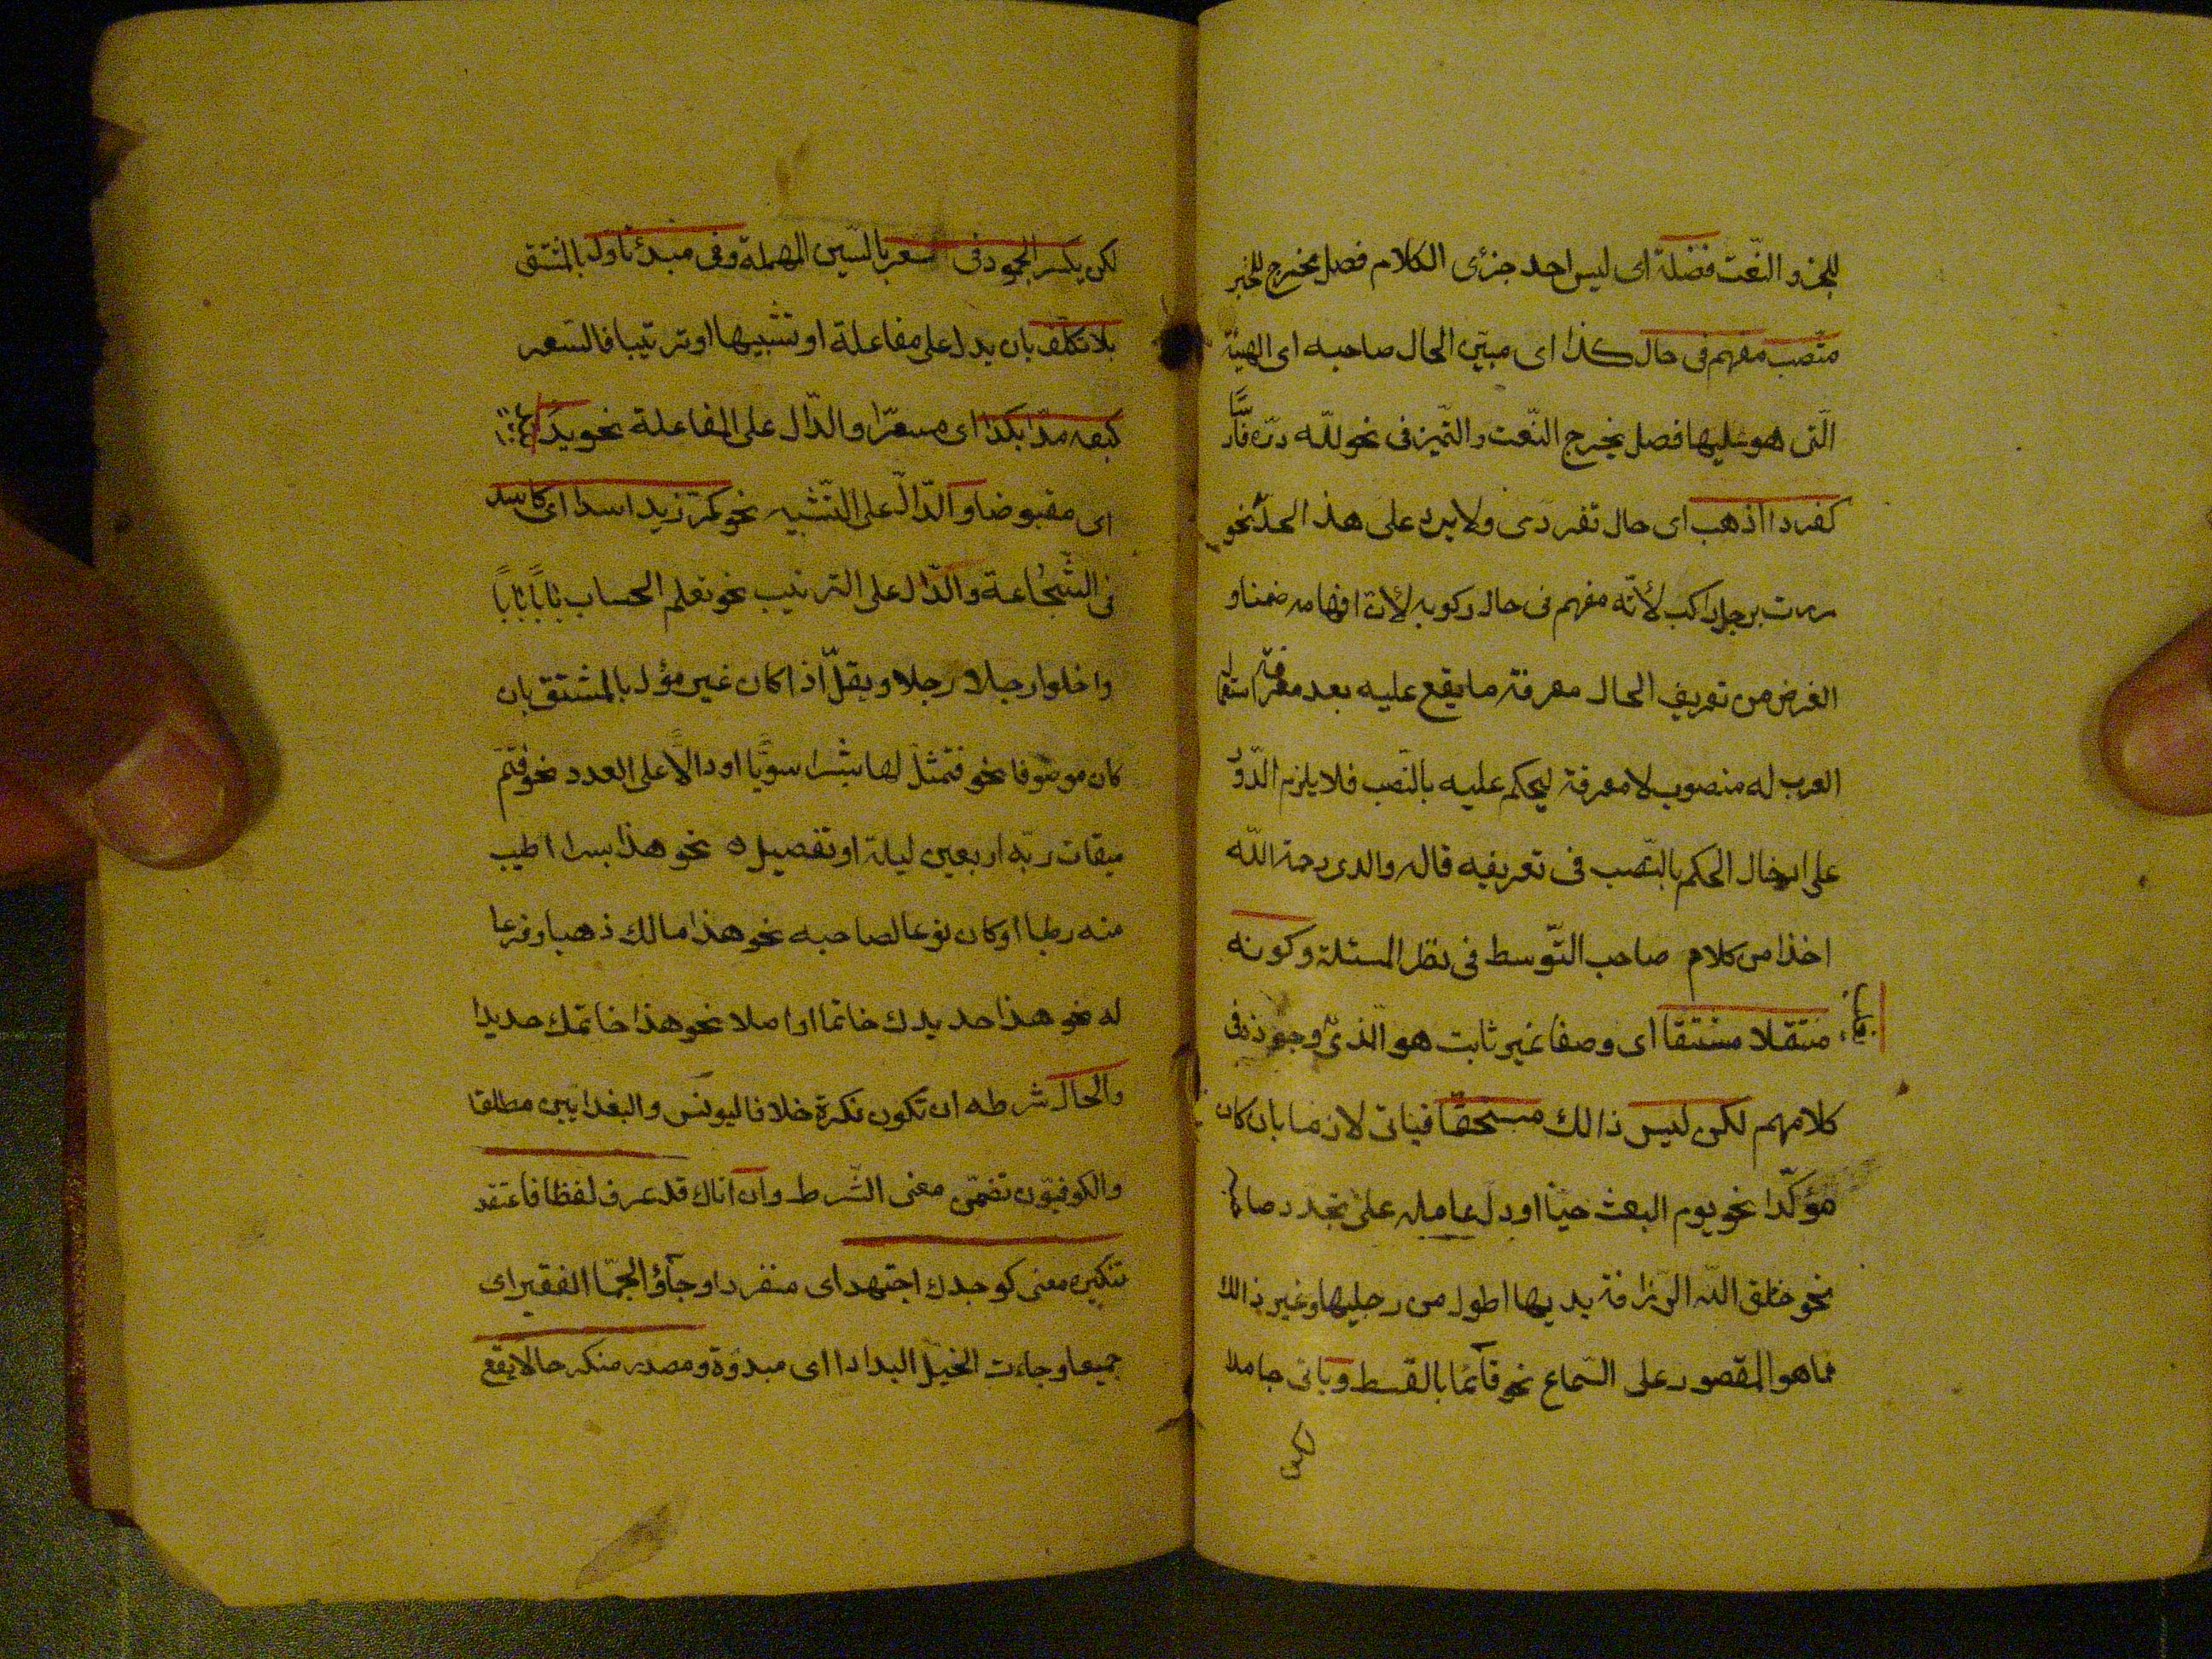 للجر و النّعت فضلة اى ليس احد جزئى الكلام فصل مخرج للخبر
منتصب مفهم فى حال كذا اى مبيّن الحال صاحبه اى الهيئة
الّتى هو عليها فصل يخرج النّعت و التّميز فى نحو للّه درّه فارسًا
كفردا اذهب اى حال تفردى ولا يرد على هذ الحدّ نحو
مررت برجل راكب لأنّه مفهم فى حال ركوبه لأنّ افهامه ضمنا و
الغرض من تعريف الحال معرفة ما يقع عليه بعد معرفة استعمال
العرب له منصوب لا معرفة ليحكم عليه بالنّصب فلا يلزم الدّور
على ادخال الحكم بالنّصب فى تعريفه قاله والدى رحمة اللّه
اخذا من كلام صاحب التّوسط فى نظر المسئلة وكونه
منتقلا مشتقا اى وصفا غير ثابت هو الّذى وجوده فى
كلامهم لكن ليس ذالك مستحقّا فياتى لازما بان كان
مؤكّدا نحو يوم البعث حيّا او دلّ عامله على تجدد صاحبها
نحو خلق اللّه الزّرافة يديها اطول من رجليها وغير ذالك
مما هو المقصور على السّماع نحو قآئما بالقسط وياتى جامدا
لكن
لكن يكسر الجمود فى سعر بالسّين المهملة وفى مبدئ تاول بالمشتق
بلا تكلّف بان يدل على مفاعلة او تشبيها او ترتيبا فالسعر
كبعه مدّا بكذا اى مسعّرا والدّال على المفاعلة نحو يدا
اى مقبوضا والدّالّ على التّشبيه نحو كرّ زيد اسدا اى كاسد
فى الشّجاعة والدّال على الترتيب نحو تعلم الحساب بابًا بابًا
وادخلوا رجلا رجلا ويقلّ اذا كان غير مؤل بالمشتق بان
كان موصوفا نحو فتمثل لها بشرا سويّا او دالّا على العدد نحو فتم
ميقات ربّه اربعين ليلة او تفصيل نحو هذا بسرا اطيب
منه رطبا او كان نوعا لصاحبه نحو هذا مالك ذهبا وفرعا
له نحو هذا حديدك خاتما او اصلا نحو هذا خاتمك حديدا
والحال شرطه ان تكون نكرة خلافا ليونس والبغداديين مطلقا
والكوفيّون تضمن معنى الشّرط وان اتاك قد عرف لفظا فاعتقد
تنكيره معنى كوحدك اجتهد اى منفردا وجآؤ الجمّا الغفير اى
جميعا وجاءت الخيل البدادا اى مبدوّة ومصدر منكر حالا يقع